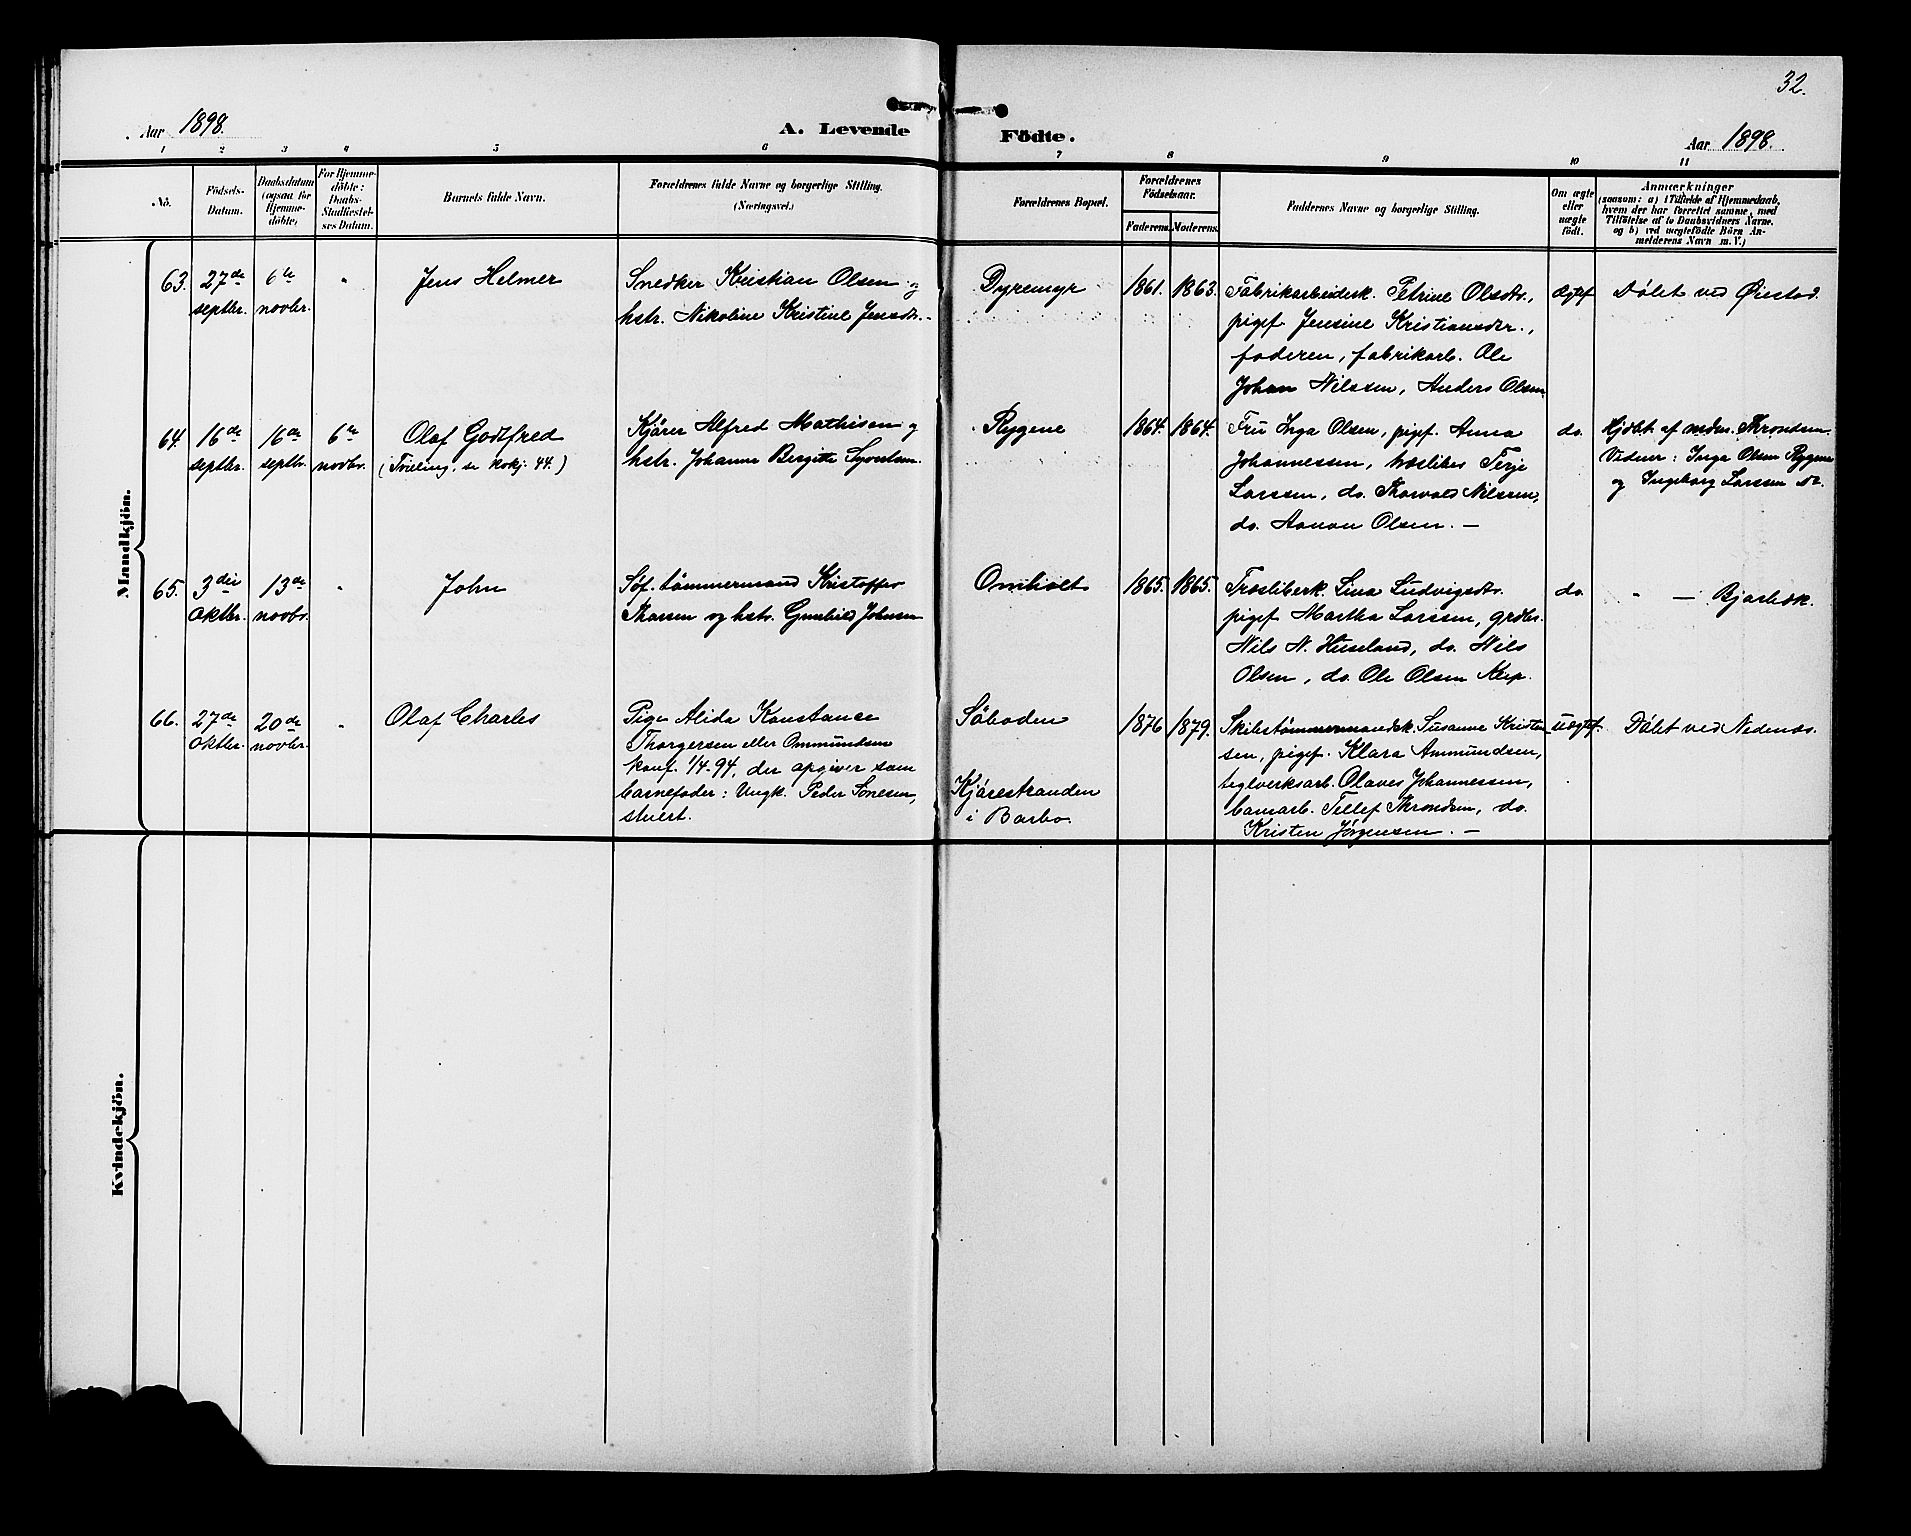 32.
Aar 1898.
A. Levende Födte.
Aar 1898.
1 2 3 4 5 6 7 8 9 10 11
No.
Födsels-Datum.
Daabsdatum (ogsaa for Hjemmedöbte)
For Hjemmedöbte: Daabs-Stadfæstelses Datum.
Barnets fulde Navn.
Forældrenes fulde Navne og borgerlige Stilling. (Næringsvei.)
Forældrenes Bopæl.
Forældrenes Födselsaar.
Faderens. Moderens.
Faddernes Navne og borgerlige Stilling.
Om ægte eller uægte födt.
Anmærkninger
(saasom: a) i Tilfælde af Hjemmedaab,
hvem der har forrettet samme, med
Tilföielse af to Daabsvidners Navne.
og b) ved uægtefödte Börn An-
melderens Navn m. V.)
Mandkjön.
63. 27de septbr. 6te novbr. " Jens Helmer
Snedker Kristian Olsen og
hstr. Nikoline Kristine Jensdtr. -
Dyremyr 1861. 1863.
Fabrikarbeidersk. Petrine Olsdtr.,
pigef. Jensine Kristiansdtr.,
faderen, fabrikarb. Ole
Johan Nilssen, Anders Olsen
Ægtef. Döbt ved Øiestad.
64. 16de septbr. 16de septbr. 6te novbr. Olaf Godtfred
(Tvilling, se kvkj. 44.)
Kjörer Alfred Mathisen og
hstr. Johanne Bergitte Syvertsen.
Rygene 1864. 1864.
Fru Inga Olsen, pigef. Anna
Johannessen, træsliber Terje
Larssen, do. Thorvald Nilssen,
do. Aanon Olsen. —
do.
Hjdöbt. af Throndsen.
Vidner: Inga Olsen Rygene
og Ingeborg Larssen do.
65. 3die oktbr. 13de novbr. " John
Söf. tömmermand Kristoffer
Thorsen og hstr. Gunhild Johnsen
Omholt 1865. 1865.
Træslibersk. Lina Ludvigsdtr.
pigef. Martha Larssen, grdbr.
Nils N. Huseland, do. Nils
Olsen, do. Ole Olsen Klep.
do. " — Bjorbæk.
66. 27de oktbr. 20de novbr. " Olaf Charles
Pige Alida Konstance
Thorgersen eller Ommundsen
konf. 1/4-94, der opgiver som
barnefader: Ungk. Peder Sönesen,
stuert.
Söboden
Kjörestranden
i Barbo.
1876 1879.
Skibstömmermandsk. Susanne Kristen
sen, pigef. Klara Ammundsen,
teglverksarb. Olaves Johannessen,
Tellef Throndsen, do.
Kristen Jörgensen. —
uægtef. Döbt ved Nedenæs.
Kvindekjön.